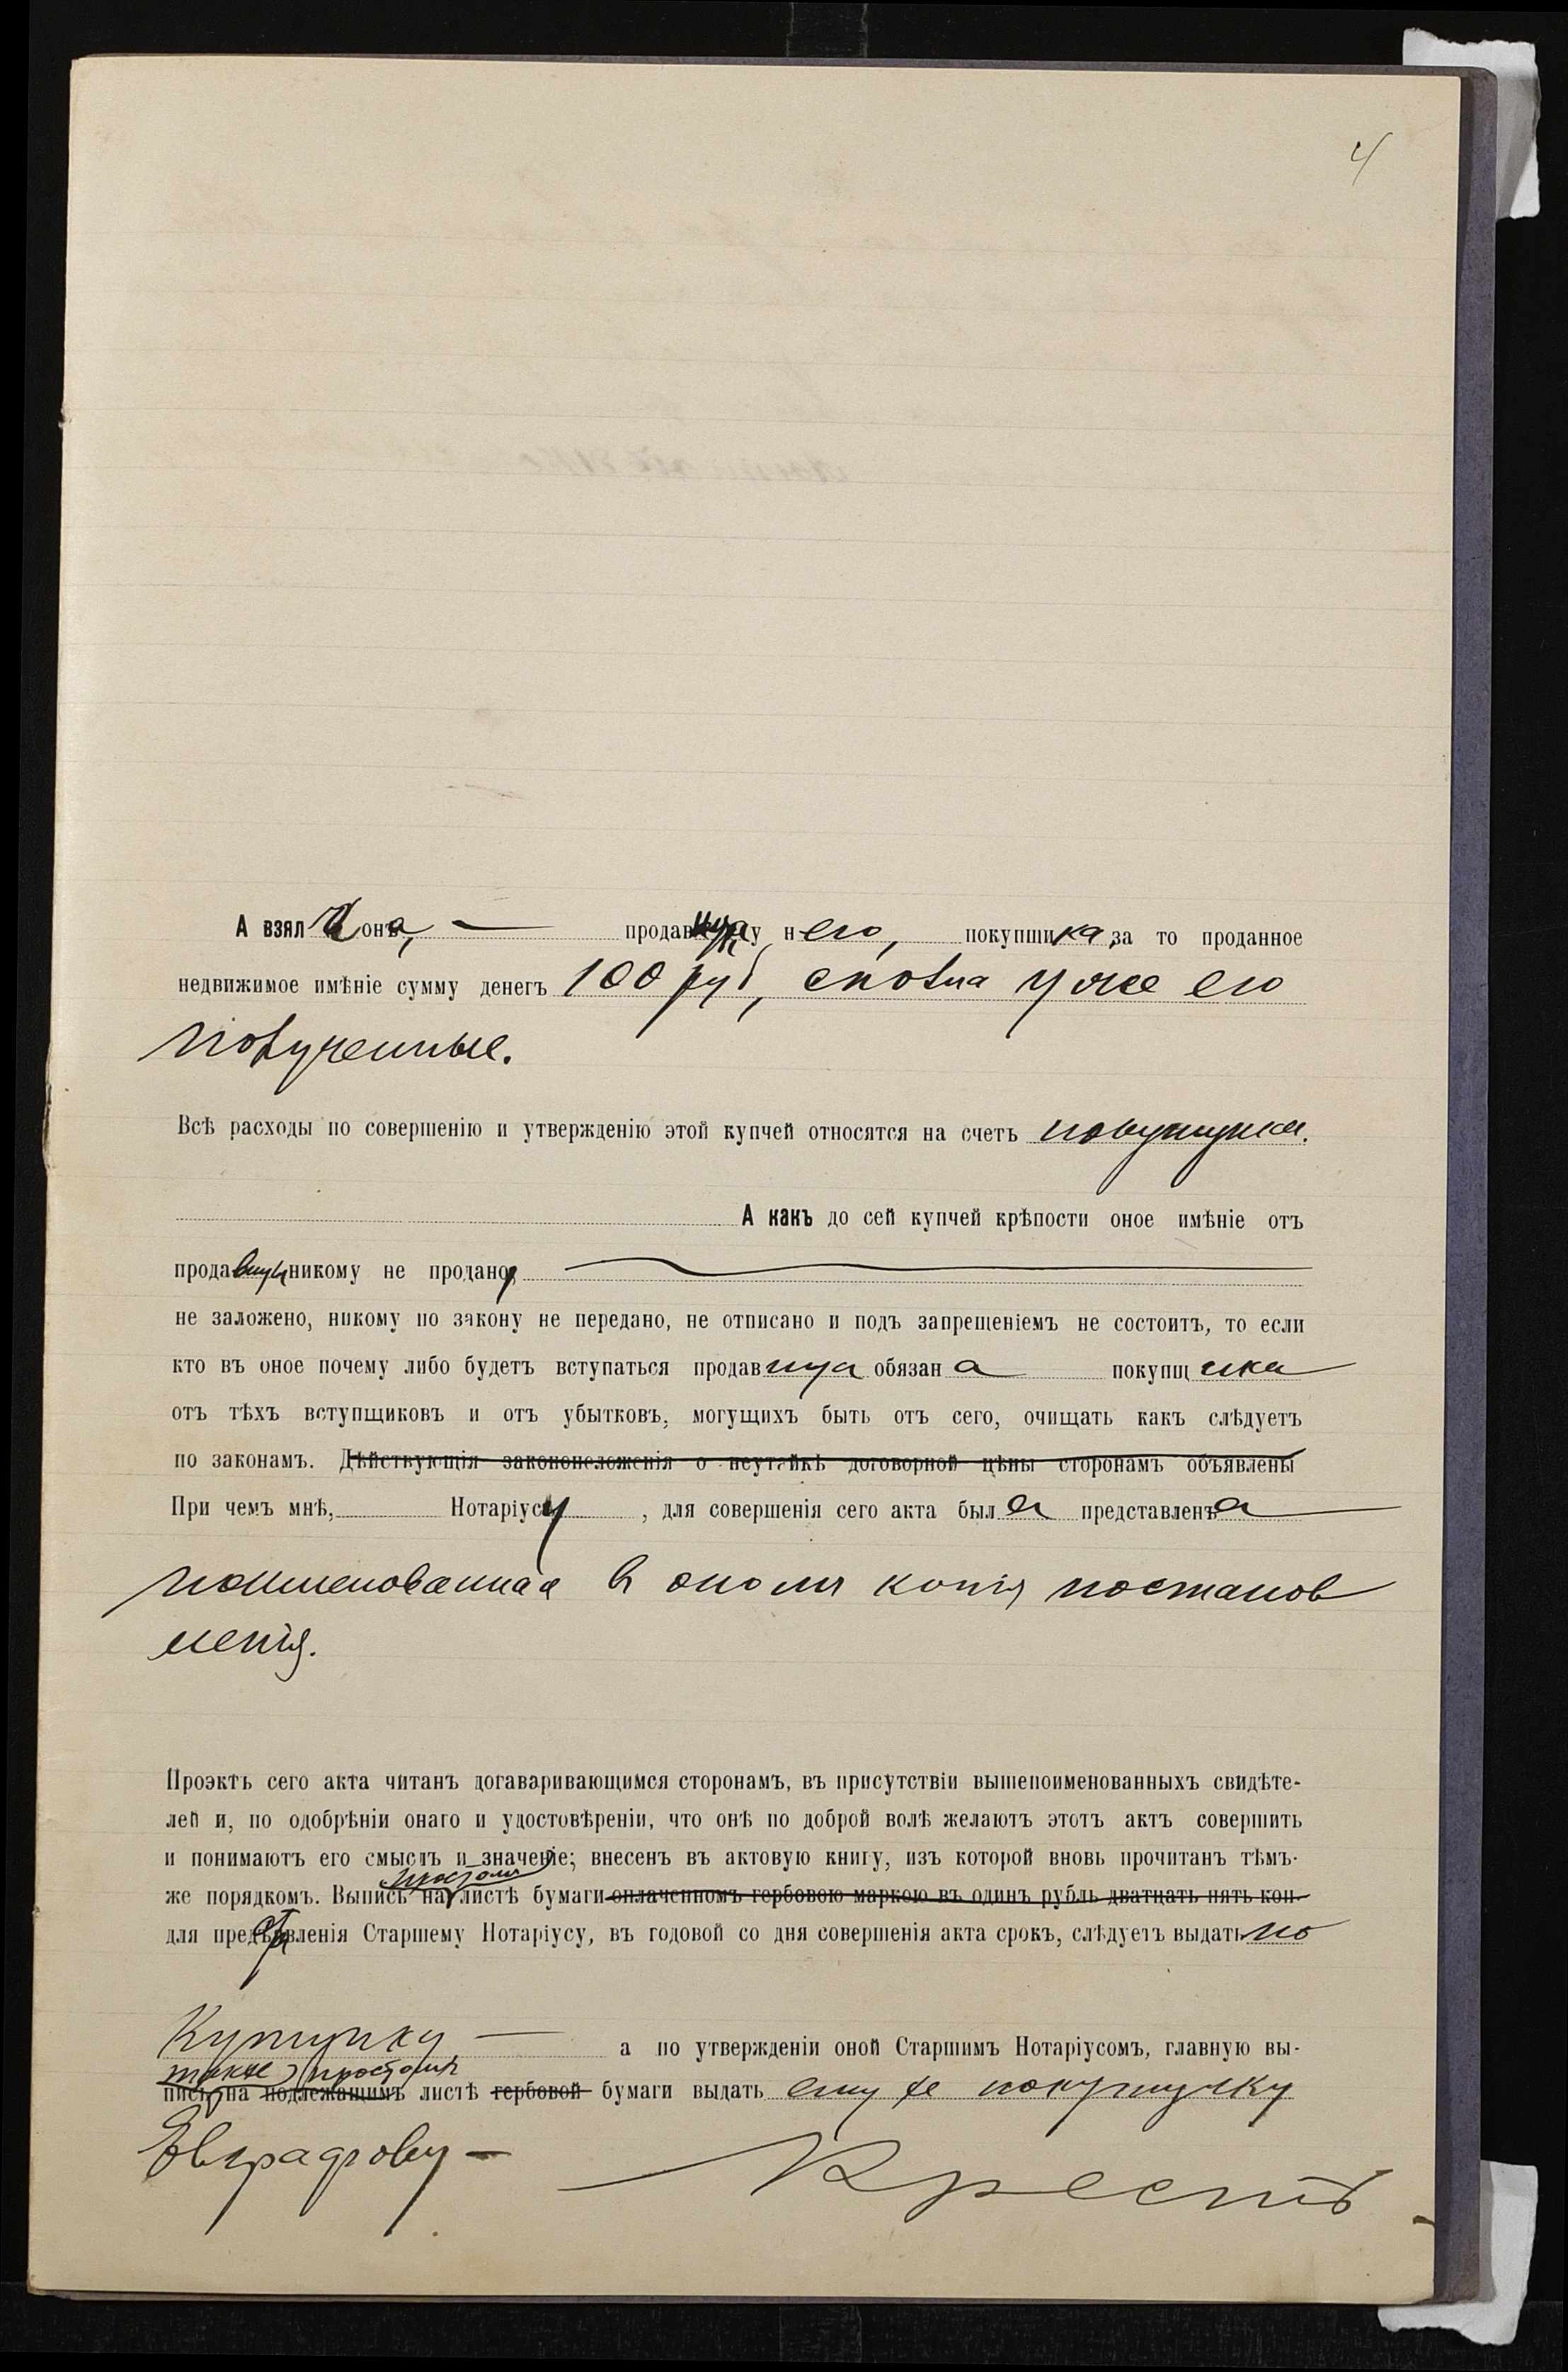 4
А взяла она, — продавица у него, покупщика за то проданное
недвижимое имѣніе сумму денегъ 100 руб, сполна уже ею
полученные.
Всѣ расходы по совершенію и утвержденію этой купчей относятся на счетъ покупщика.
А какъ до сей купчей крѣпости оное имѣніе отъ
продавицы никому не продано,
не заложено, никому по закону не передано, не отписано и подъ запрещеніемъ не состоитъ, то если
кто въ оное почему либо будетъ вступаться продавица обязана покупщика
отъ тѣхъ вступщиковъ и отъ убытковъ, могущихъ быть отъ сего, очищать какъ слѣдуетъ
по законамъ. Дѣйствующія законоположенія о неутайкѣ договорной цѣны сторонамъ объявлены
При чемъ мнѣ, Нотаріусу, для совершенія сего акта была представлена
поименованная в копія постанов
ленія.
Проэктъ сего акта читанъ догаваривающимся сторонамъ, въ присутствіи вышепоименованныхъ свидѣте-
лей и, по одобрѣніи онаго и удостовѣреніи, что онѣ по доброй волѣ желаютъ этотъ актъ совершить
и понимаютъ его смыслъ и значеніе; внесенъ въ актовую книгу, изъ которой вновь прочитанъ тѣмъ-
простомъ
же порядкомъ. Выпись на листѣ бумаги оплаченномъ гербовою маркою въ одинъ рубль дватцать пять коп.
для предъявленія Старшему Нотаріусу, въ годовой со дня совершенія акта срокъ, слѣдуетъ выдать по
купщику — а по утвержденіи оной Старшимъ Нотаріусомъ, главную вы-
также простомъ
пись на подлежащимъ листѣ гербовой бумаги выдать ему же покупщику
Евграфову —